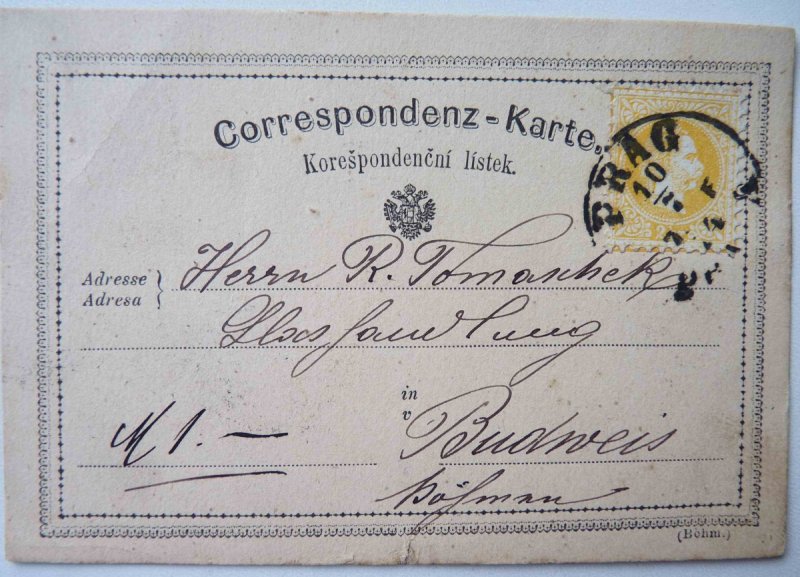 Correspondenz-Karte.
Korešpondenční lístek.
PRAG
10
Adresse
Adresa
Herrn R. Tomaschek
Glashandlung
in
v
Budweis
Böhmen
M 1.—
(Böhm.)